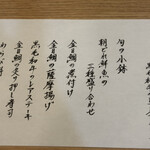 旬の小鉢
朝どれ鮮魚の
二種盛り合わせ
金目鯛の煮付け
金目鯛の薩摩揚げ
黒毛和牛のレアステーキ
金目鯛の炙り押し寿司